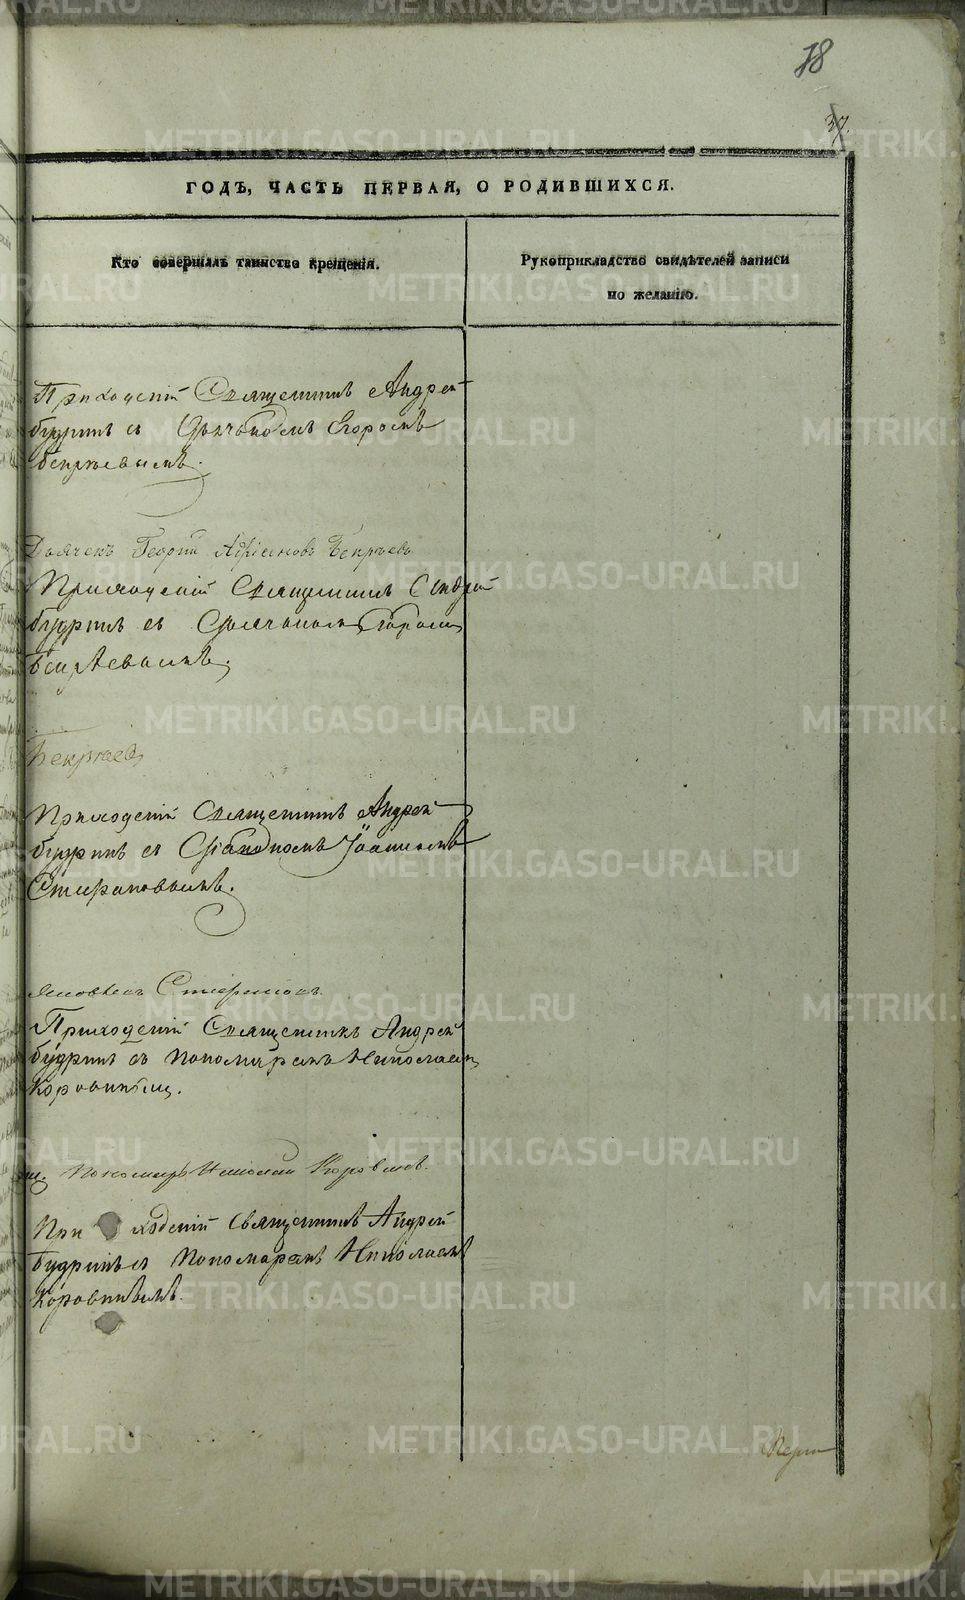 78
37.
ГОДЪ, ЧАСТЬ ПЕРВАЯ, О РОДИВШИХСЯ.
Кто совершалъ таинство крещенія.
Рукоприкладство свидѣтелей записи
по желанію.
Приходскій Священникъ Андрей
Будринъ съ Дьячкомъ Егоромъ
Бекрѣевымъ.
Дьячекъ Георгій Адріановъ Бекрѣевъ
Приходскій Священникъ Андрей
Будринъ съ Дьячкомъ Егоромъ
Бекрѣевымъ.
Бекрѣевъ
Приходскій Священникъ Андрей
Будринъ съ Діакономъ Іоанномъ
Стефановымъ.
Стефановъ
Приходскій Священникъ Андрей
Будринъ съ Пономаремъ Николаемъ
Коровинымъ.
Пономарь Николай Коровинъ.
Приходскій Священникъ Андрей
Будринъ съ Пономаремъ Николаемъ
Коровинымъ.
METRIKI.GASO-URAL.RU